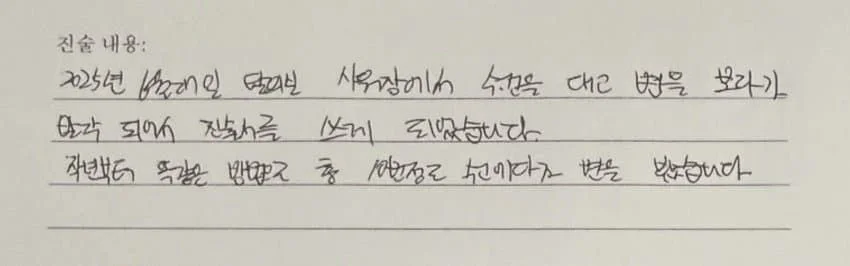 진술 내용:
2025년 탈의실 샤워장에서 수건을 대고 변을 보다가
발각 되어서 진술서를 쓰게 되었습니다.
작년부터 똑같은 방법으로 총 10번정도 수건에다가 변을 보았습니다